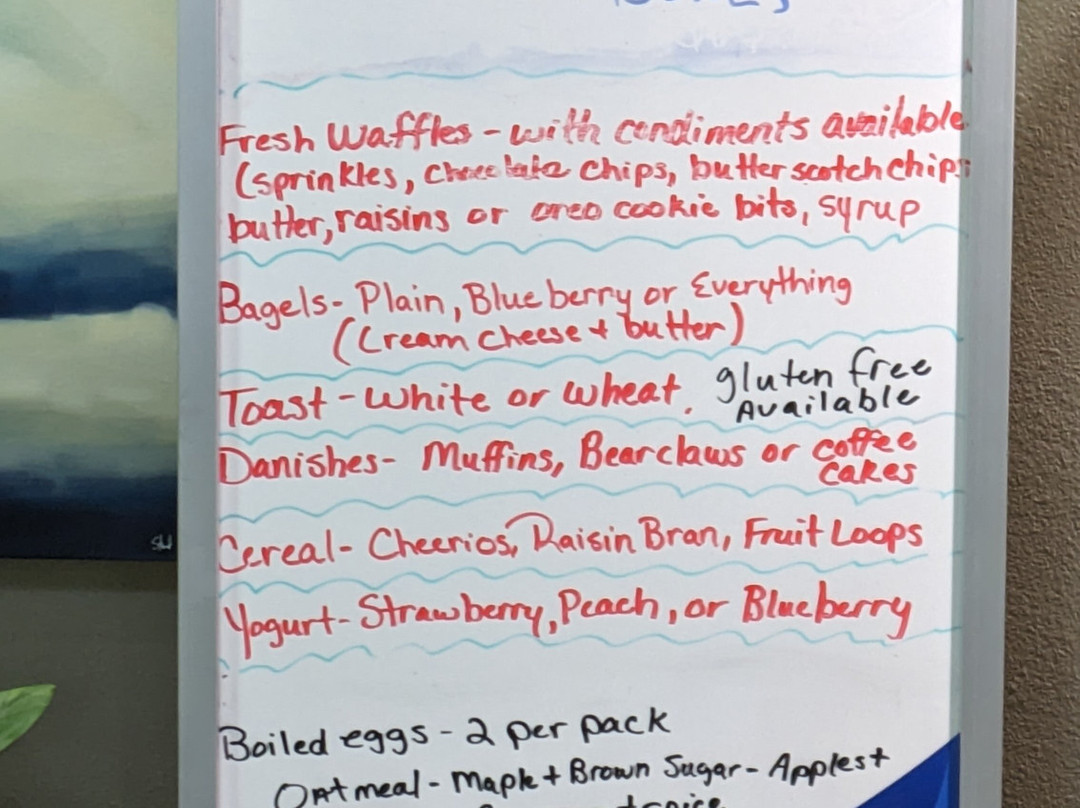 Fresh Waffles - with condiments available
(sprinkles, chocolate chips, butter scotch chips
butter, raisins or oreo cookie bits, syrup
Bagels - Plain, Blueberry or Everything
(Cream cheese + butter)
Toast - White or wheat. gluten free
Available
Danishes - Muffins, Bearclaws or coffee
cakes
Cereal - Cheerios, Raisin Bran, Fruit Loops
Yogurt - Strawberry, Peach, or Blueberry
SW
Boiled eggs - 2 per pack
Oatmeal - Maple + Brown Sugar - Apples +